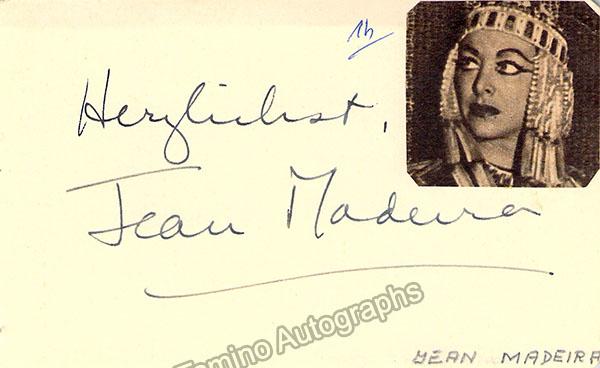 Herzlichst,
Jean Madeira
Tamino Autographs
JEAN MADEIRA